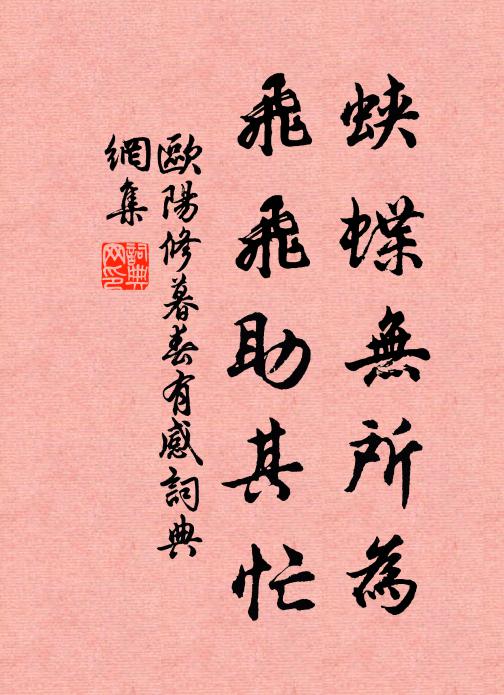 蛱蝶無所為
飛飛助其忙
歐陽修暮春有感詞典
網集
詞典
网印